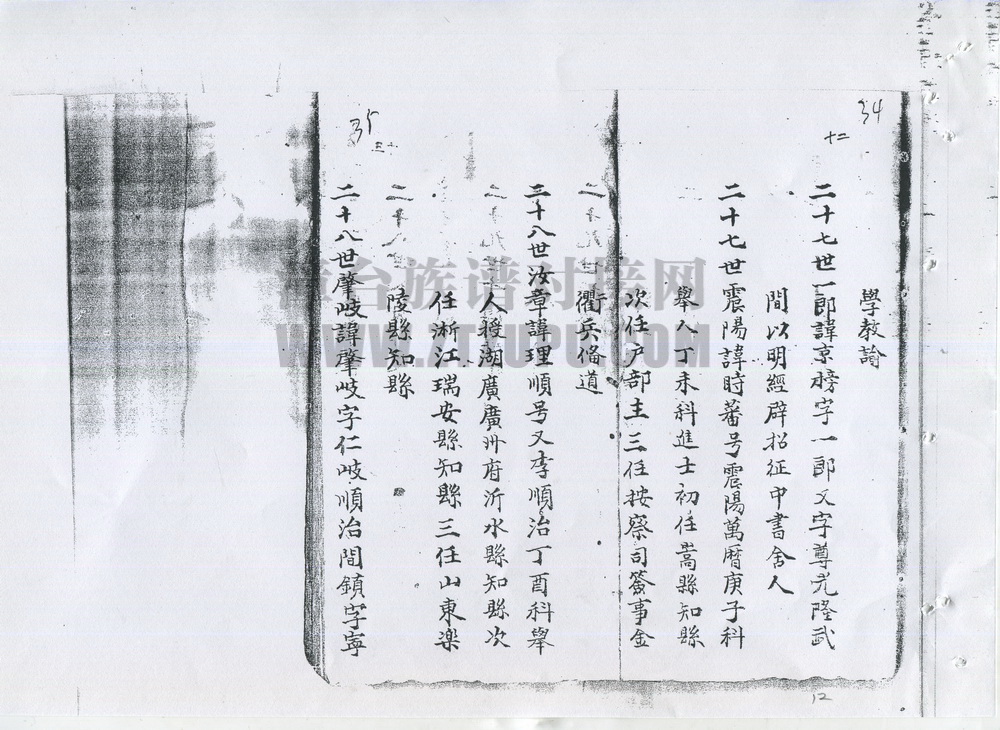 34
十二
學教諭
二十七世一郎諱京榜字一郎又字尊光隆武
間以明經辟招征中書舍人
二十七世震陽諱時蕃号震陽萬曆庚子科
舉人丁未科進士初任嵩縣知縣
次任户部主三任按察司簽事金
衢兵俻道
三十八世汝章諱理順号又李順治丁酉科舉
人授湖廣廣州府沂水縣知縣次
任淅江瑞安縣知縣三任山東楽
陵縣知縣
二十八世肇岐諱肇岐字仁岐順治間鎮字寧
35
12
族谱对接网
WWW.ZTZUPU.COM